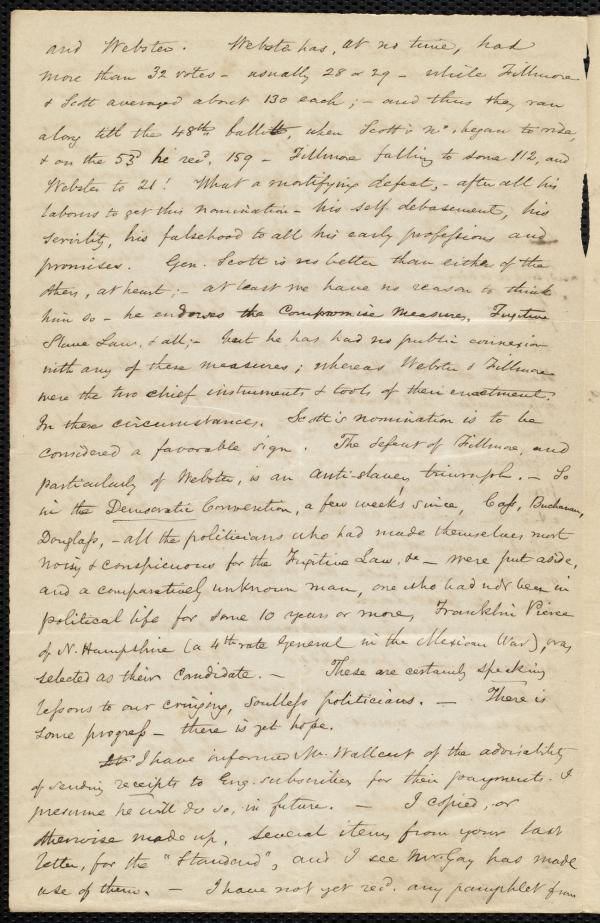 and Webster. Webster has, at no time, had
more than 32 votes - usually 28 or 29 - while Fillmore
& Scott averaged about 130 each; - and thus they ran
along till the 48th ballot, when Scott's no. began to rise,
& on the 53d he recd. 159 - Fillmore falling to some 112, and
Webster to 21! What a mortifying defeat, - after all his
labours to get this nomination - his self-debasement, his
servility, his falsehood to all his early professions and
promises. Gen. Scott is no better than either of the
others, at heart; - at least we have no reason to think
him so - he endorses the Compromise measures, Fugitive
Slave Law, & all; - but he has had no public connexion
with any of these measures; whereas Webster & Fillmore
were the two chief instruments & tools of their enactment.
In these circumstances, Scott's nomination is to be
considered a favorable sign. The defeat of Fillmore, and
particularly of Webster, is an anti-slavery triumph. - So
in the Democratic Convention, a few weeks since, Cass, Buchanan,
Douglass, - all the politicians who had made themselves most
noisy & conspicuous for the Fugitive Law, &c - were put aside,
and a comparatively unknown man, one who had not been in
political life for some 10 years or more, Franklin Pierce
of N. Hampshire (a 4th rate General in the Mexican War), was
selected as their candidate. - These are certainly speaking
lessons to our cringing, soulless politicians. - There is
some progress - there is yet hope.
I have informed Mr. Wallcut of the advisability
of sending receipts to Eng. subscribers for their payments. I
presume he will do so, in future. - I copied, or
otherwise made up, several items from your last
letter, for the "Standard", and I see Mr. Gay has made
use of them. - I have not yet recd. any pamphlet from